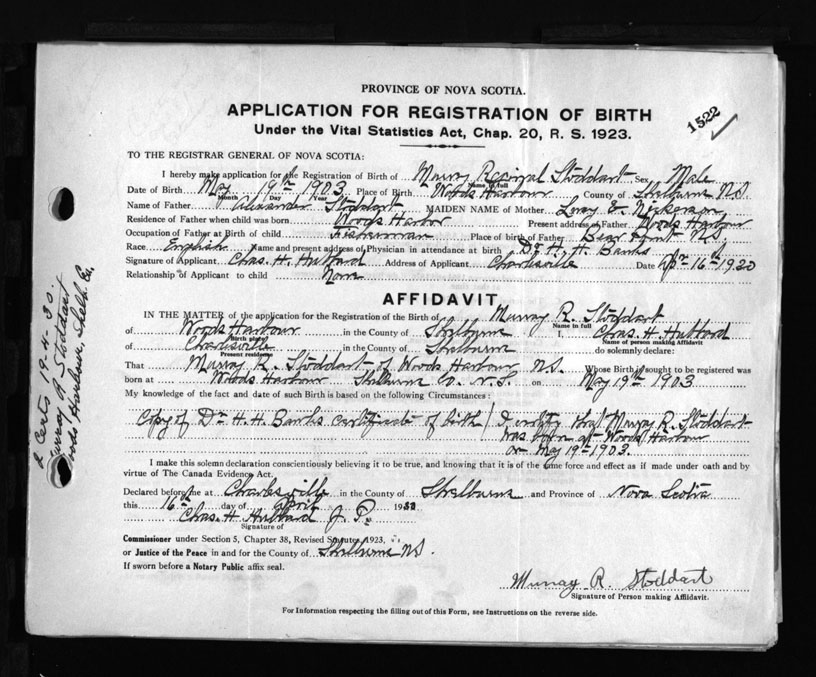 PROVINCE OF NOVA SCOTIA.
APPLICATION FOR REGISTRATION OF BIRTH
1522
Under the Vital Statistics Act, Chap. 20, R. S. 1923.
TO THE REGISTRAR GENERAL OF NOVA SCOTIA:
I hereby make application for the Registration of Birth of Murray Reginal Stoddart Sex Male
Name in full
Date of Birth May 19th 1903 Place of Birth Woods Harbour County of Shelburne N.S.
Month Day Year
Name of Father Alexander Stoddart MAIDEN NAME of Mother E. Nickerson
Residence of Father when child was born Woods Harbor Present address of Father Woods Harbour
Occupation of Father at Birth of child Fisherman Place of birth of Father Bear Point N.S.
Race English Name and present address of Physician in attendance at birth Dr H. H. Banks
Signature of Applicant Chas. H. Hubbard Address of Applicant Charlesville Date Apr 16th 1930
Relationship of Applicant to child None
AFFIDAVIT
IN THE MATTER of the application for the Registration of the Birth of Murray R. Stoddart
Name in full
of Woods Harbour in the County of Shelburne I, Chas. H. Hubbard
Birth place
Name of person making Affidavit
of Charlesville in the County of Shelburne do solemnly declare:
Present residence
That Murray R. Stoddart of Woods Harbour N.S. Whose Birth is sought to be registered was
born at Woods Harbour Shelburne Co. N.S. on May 19th 1903
My knowledge of the fact and date of such Birth is based on the following Circumstances:
Copy of Dr H. H. Banks certificate of birth / I certify that Murray R. Stoddart
was born at Woods Harbour
on May 19th 1903.
I make this solemn declaration conscientiously believing it to be true, and knowing that it is of the same force and effect as if made under oath and by
virtue of The Canada Evidence Act.
Declared before me at Charlesville in the County of Shelburne and Province of Nova Scotia
this 16th day of April 1930
Chas. H. Hubbard J. P.
Signature of
Commissioner under Section 5, Chapter 38, Revised Statutes, 1923,
or Justice of the Peace in and for the County of Shelburne N.S.
If sworn before a Notary Public affix seal.
Murray R. Stoddart
Signature of Person making Affidavit.
For Information respecting the filling out of this Form, see Instructions on the reverse side.
2 Certs 19-4-30.
Murray R Stoddart
Woods Harbour, Shelb. Co.